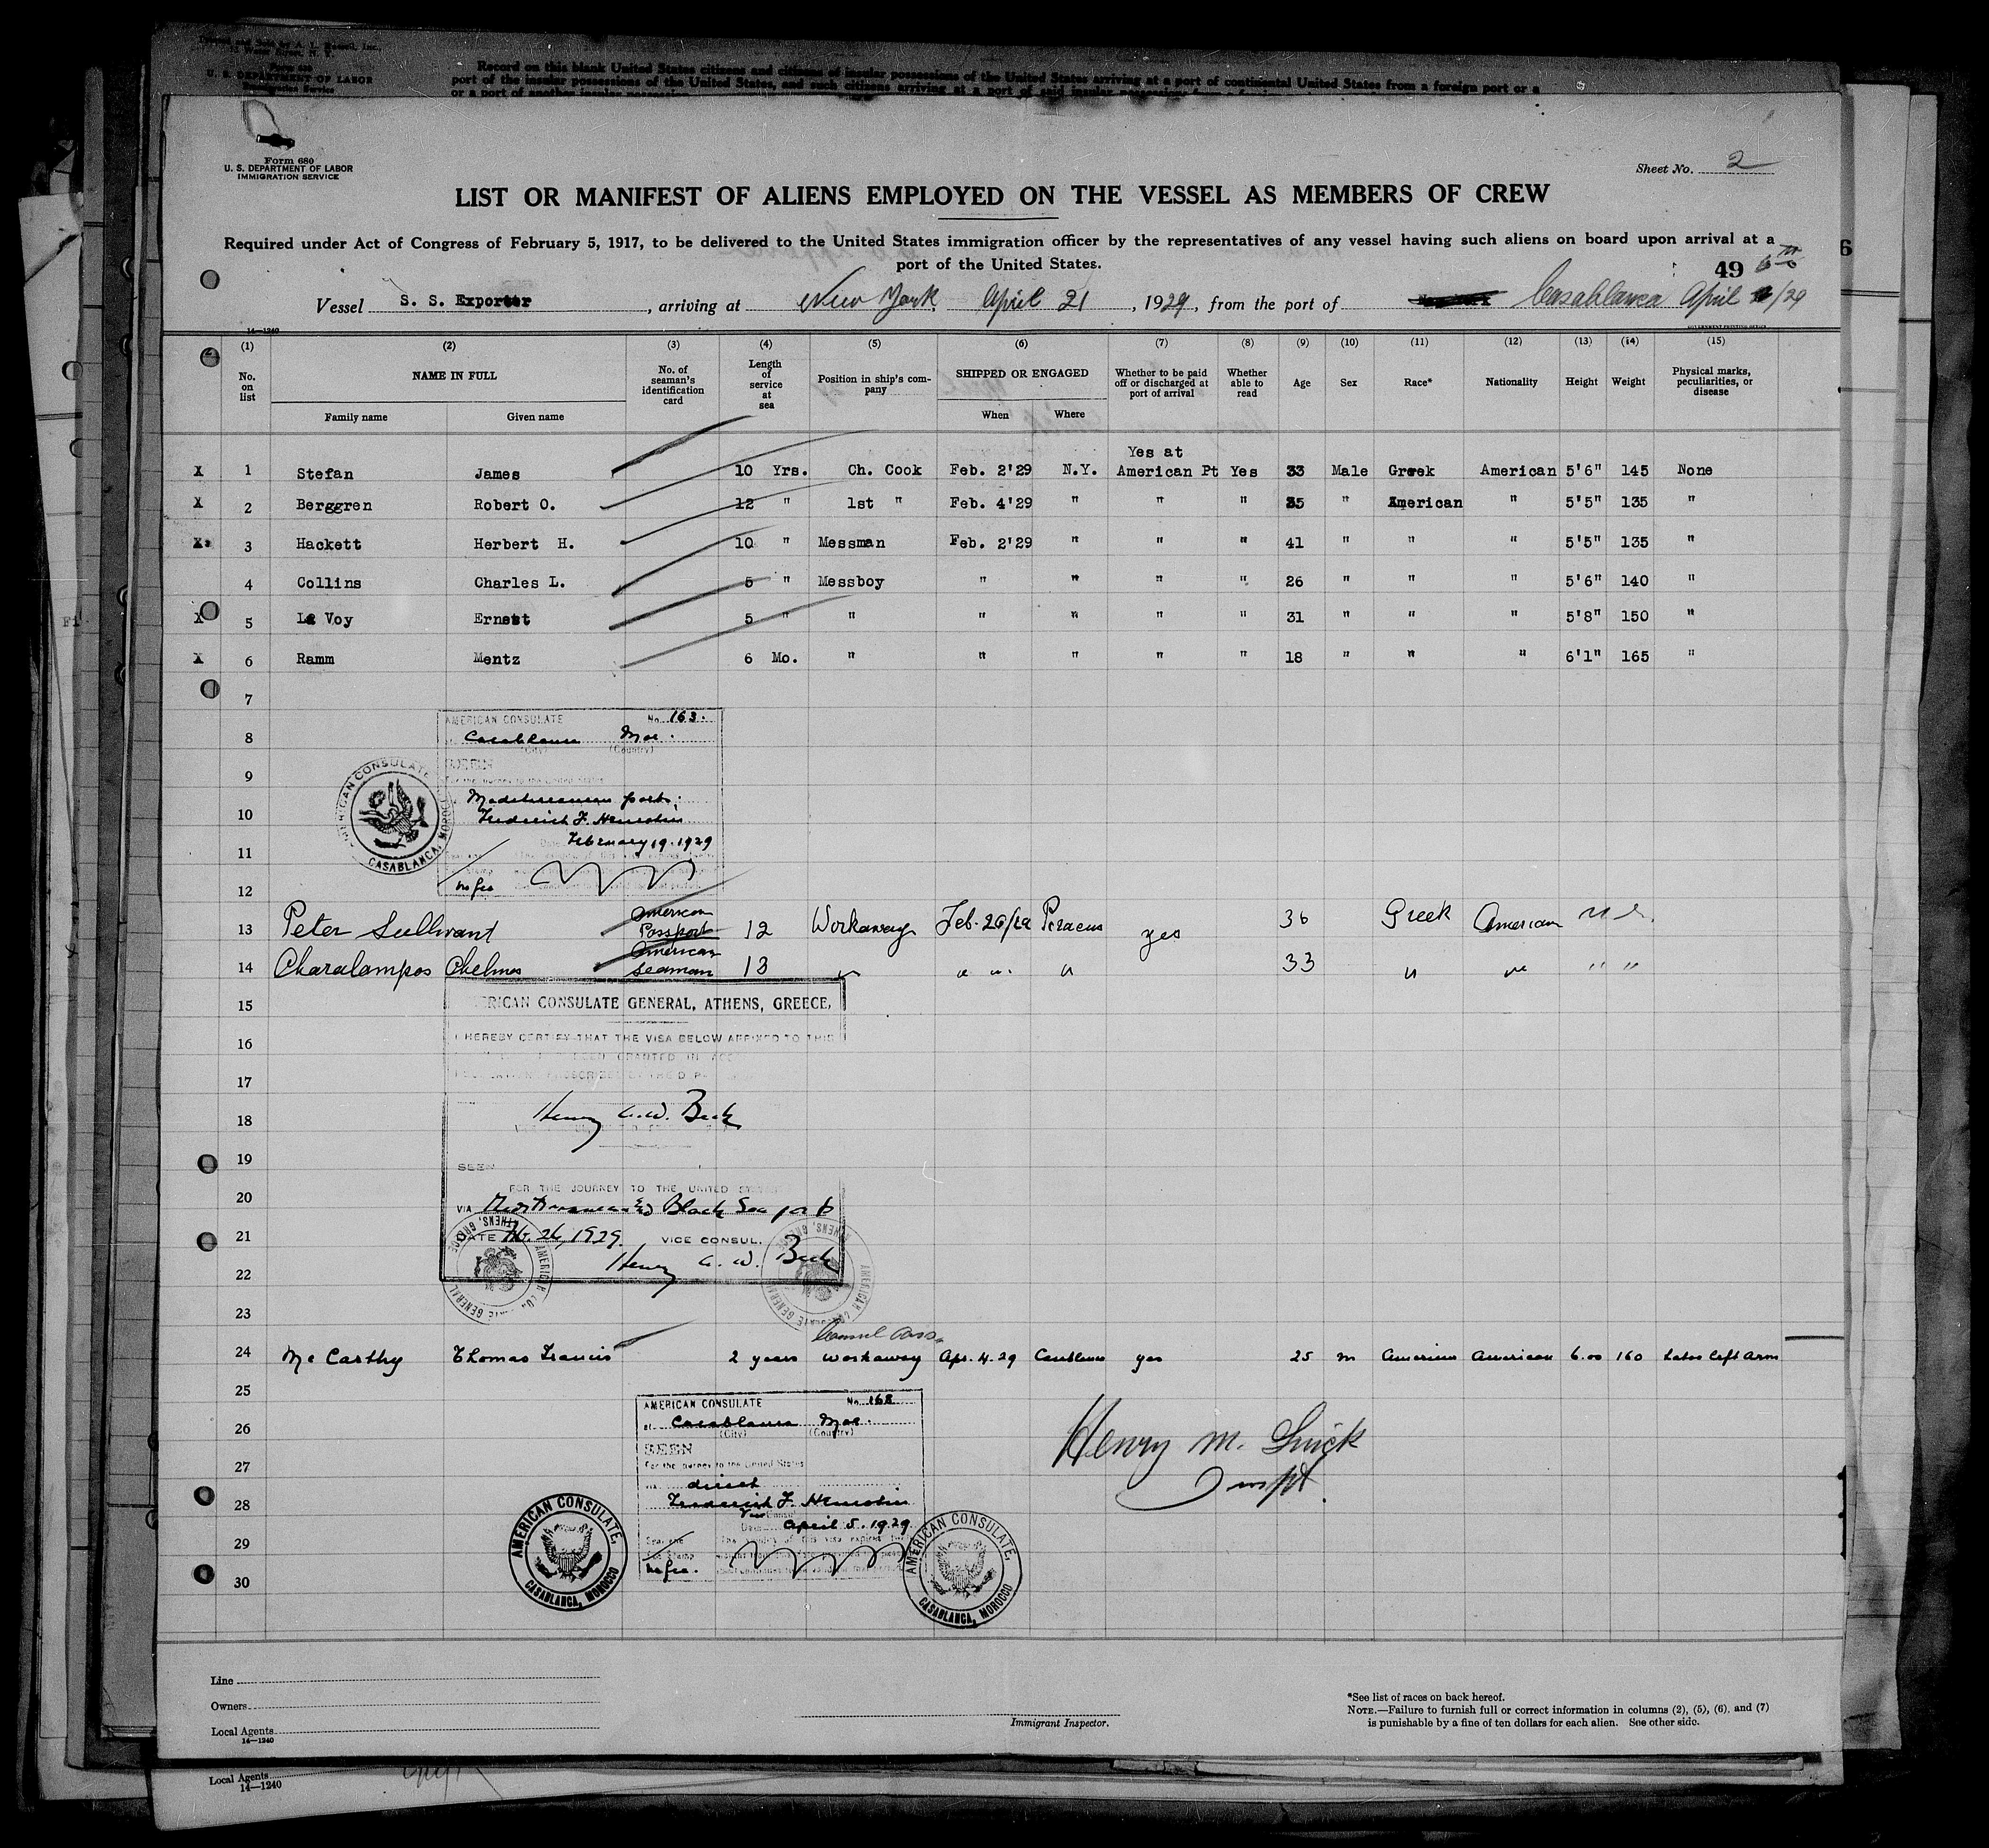 Form 630
U. S. DEPARTMENT OF LABOR
Immigration Service
Record on this blank United States citizens and citizens of insular possessions of the United States arriving at a port of continental United States from a foreign port or a
port of the insular possessions of the United States, and such citizens arriving at a port of said insular possessions from a foreign
or a port of another insular possession
Form 680
U. S. DEPARTMENT OF LABOR
IMMIGRATION SERVICE
Sheet No. 2
LIST OR MANIFEST OF ALIENS EMPLOYED ON THE VESSEL AS MEMBERS OF CREW
Required under Act of Congress of February 5, 1917, to be delivered to the United States immigration officer by the representatives of any vessel having such aliens on board upon arrival at a
port of the United States.
49 6
Vessel S. S. Exporter, arriving at New York April 21, 1929, from the port of Casablanca April /29
14—1240
GOVERNMENT PRINTING OFFICE
(1) (2) (3) (4) (5) (6) (7) (8) (9) (10) (11) (12) (13) (14) (15)
No. on list NAME IN FULL No. of seaman's identification card Length of service at sea Position in ship's company SHIPPED OR ENGAGED Whether to be paid off or discharged at port of arrival Whether able to read Age Sex Race* Nationality Height Weight Physical marks, peculiarities, or disease
Family name Given name When Where
Yes at
X 1 Stefan James 10 Yrs. Ch. Cook Feb. 2'29 N.Y. American Pt Yes 33 Male Greek American 5'6" 145 None
X 2 Berggren Robert O. 12 " 1st " Feb. 4'29 " " " 35 " American " 5'5" 135 "
X 3 Hackett Herbert H. 10 " Messman Feb. 2'29 " " " 41 " " " 5'5" 135 "
4 Collins Charles L. 5 " Messboy " " " " 26 " " " 5'6" 140 "
X 5 La Voy Ernest 5 " " " " " " 31 " " " 5'8" 150 "
X 6 Ramm Mentz 6 Mo. " " " " " 18 " " " 6'1" 165 "
7
AMERICAN CONSULATE No. 163.
8 Casablanca Mor.
(City) (Country)
9 SEEN
For the journey to the United States
10 Mediterranean ports;
Frederick F. Henrotin
11 February 19. 1929
12 no fee
AMERICAN CONSULATE CASABLANCA, MOROCCO
13 Peter Sullivant American Passport 12 Workaway Feb. 26/29 Piraeus yes 36 Greek American
14 Charalampos Chelmos American seaman 13 " " " " 33 " " " "
15 AMERICAN CONSULATE GENERAL, ATHENS, GREECE.
16 I HEREBY CERTIFY THAT THE VISA BELOW AFFIXED TO THIS
BEEN GRANTED IN
17
18 Henry A. W. Beck
19 SEEN
20 FOR THE JOURNEY TO THE UNITED STATES
VIA Mediterranean & Black Sea ports
21 DATE Feb. 26, 1929. VICE CONSUL.
22 Henry A. W. Beck
AMERICAN CONSULATE GENERAL ATHENS, GREECE
AMERICAN CONSULATE GENERAL ATHENS, GREECE
23
Consul Pass.
24 Mc Carthy Thomas Francis 2 years workaway Apr. 4. 29 Casablanca yes 25 m American American 6.00 160 tatoo left arm
25 AMERICAN CONSULATE No. 168
26 at Casablanca Mor.
(City) (Country)
SEEN
27 For the journey to the United States
direct
28 Frederick F. Henrotin
Vice Consul
Date April 5. 1929
29
30 no fee.
AMERICAN CONSULATE, CASABLANCA, MOROCCO
AMERICAN CONSULATE, CASABLANCA, MOROCCO
Henry M. Quick
Inspt.
Line
Owners
Local Agents
14—1240
Immigrant Inspector.
*See list of races on back hereof.
NOTE.—Failure to furnish full or correct information in columns (2), (5), (6), and (7)
is punishable by a fine of ten dollars for each alien. See other side.
Local Agents
14—1240